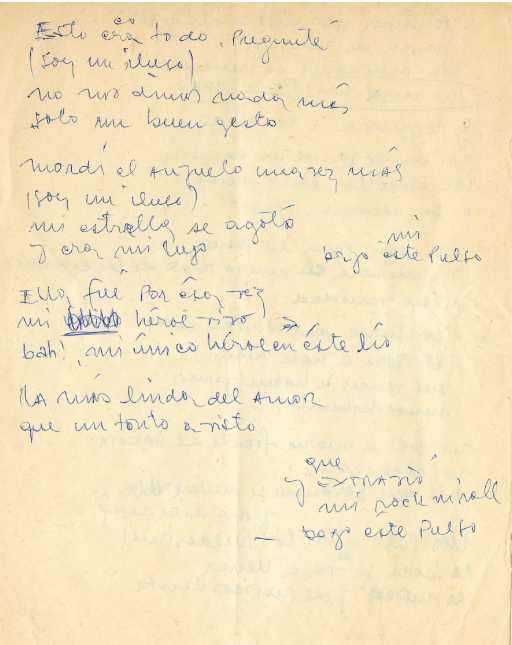 Esto es
era todo. Pregunté
(soy un iluso)
no nos dimos nada más
solo un buen gesto
mordí el anzuelo una vez más
(soy un iluso)
mi estrella se agotó
y era mi lujo
mi
bajo éste Pulso
Ella fué Por ésa vez
mi héroe vivo
bah!, mi único héroe en éste lío
LA más linda del AMOR
que un tonto a visto
que
y EXTRAÑO
mi rock n roll
— bajo éste Pulso